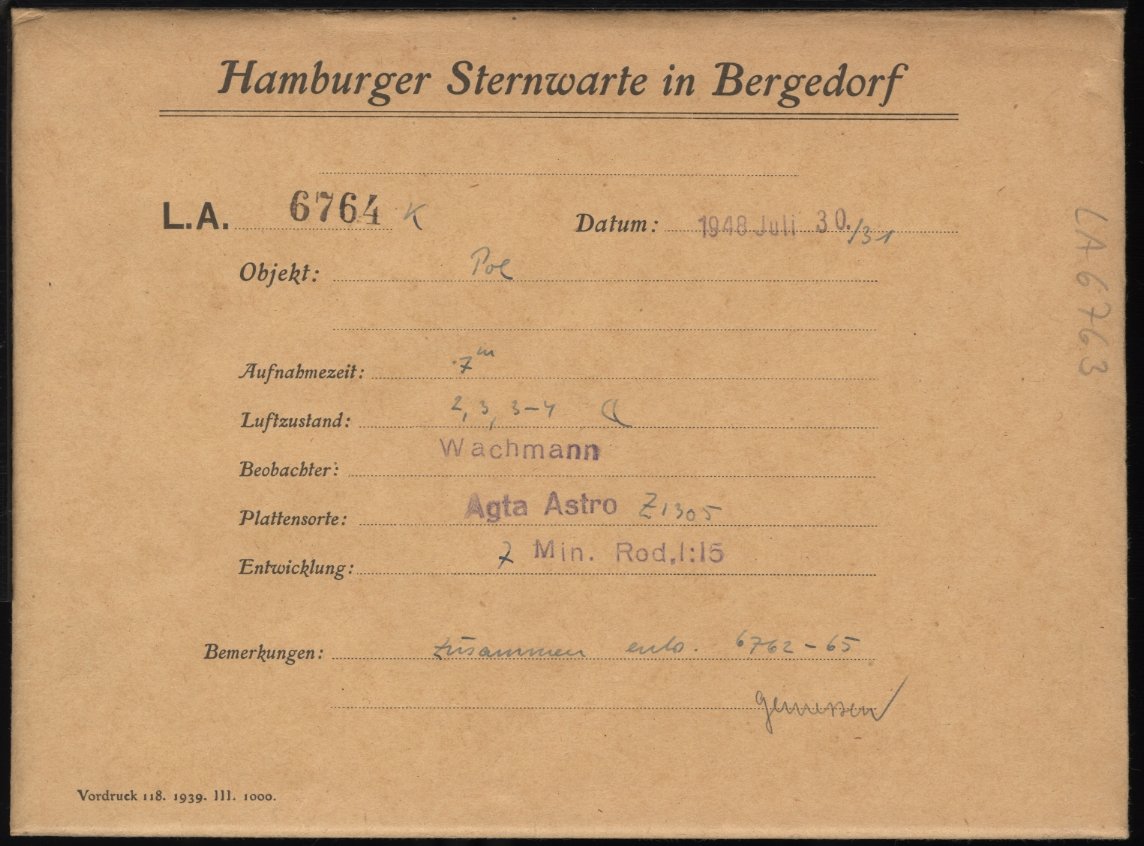 Hamburger Sternwarte in Bergedorf
L.A. 6764 K
Datum: 1948 Juli 30./31
Objekt: Pol
Aufnahmezeit: 7m
Luftzustand: 2, 3, 3-4
Beobachter: Wachmann
Plattensorte: Agfa Astro Z1305
Entwicklung: 7 Min. Rod, 1:15
Bemerkungen: zusammen 6762-65
gemessen
Vordruck 118. 1939. III. 1000.
LA 6763